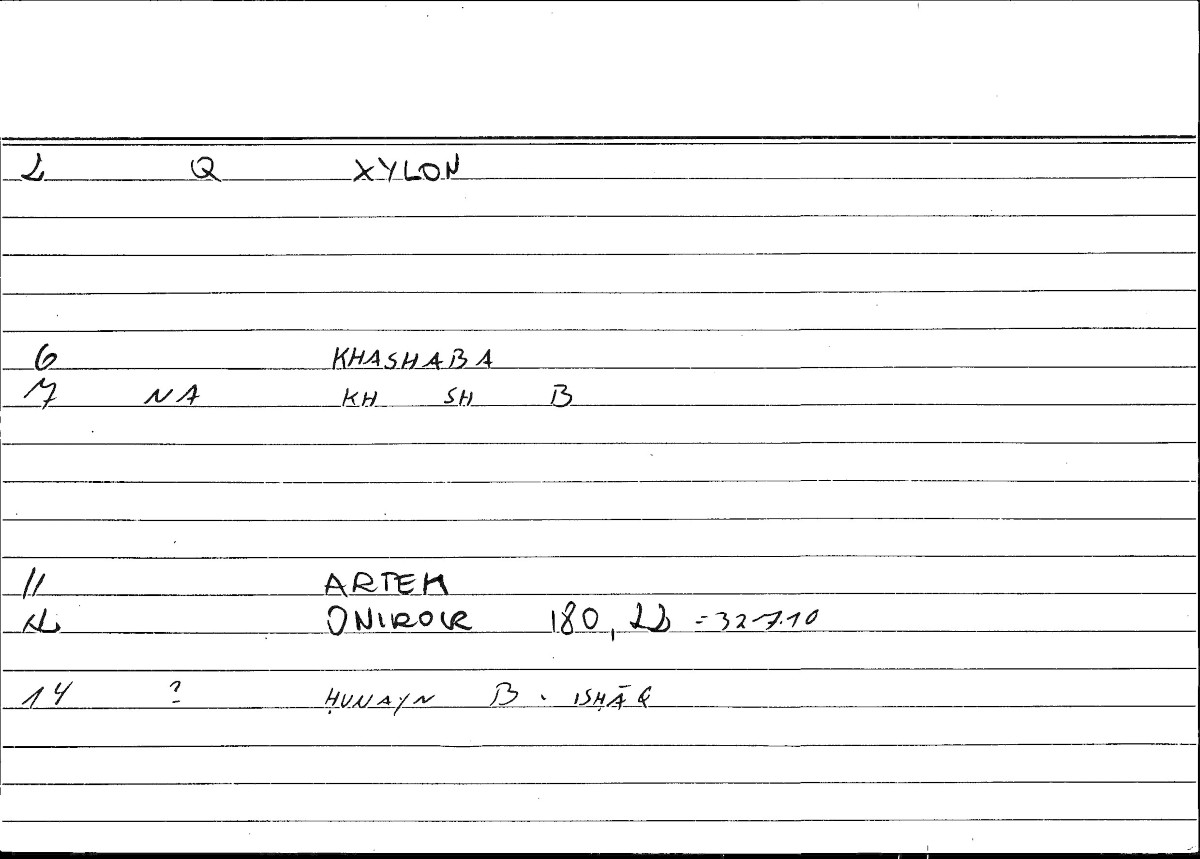 2 Q XYLON
6 KHASHABA
7 NA KH SH B
11 ARTEM
12 ONIROCR 180, 22 = 327.10
14 ? ḤUNAYN B. ISḤĀQ